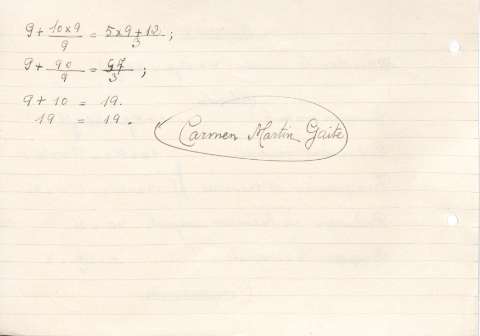 9 + 10 x 9 / 9 = 5 x 9 + 12 / 3 ;
9 + 90 / 9 = 57 / 3 ;
9 + 10 = 19.
19 = 19.
Carmen Martin Gaite